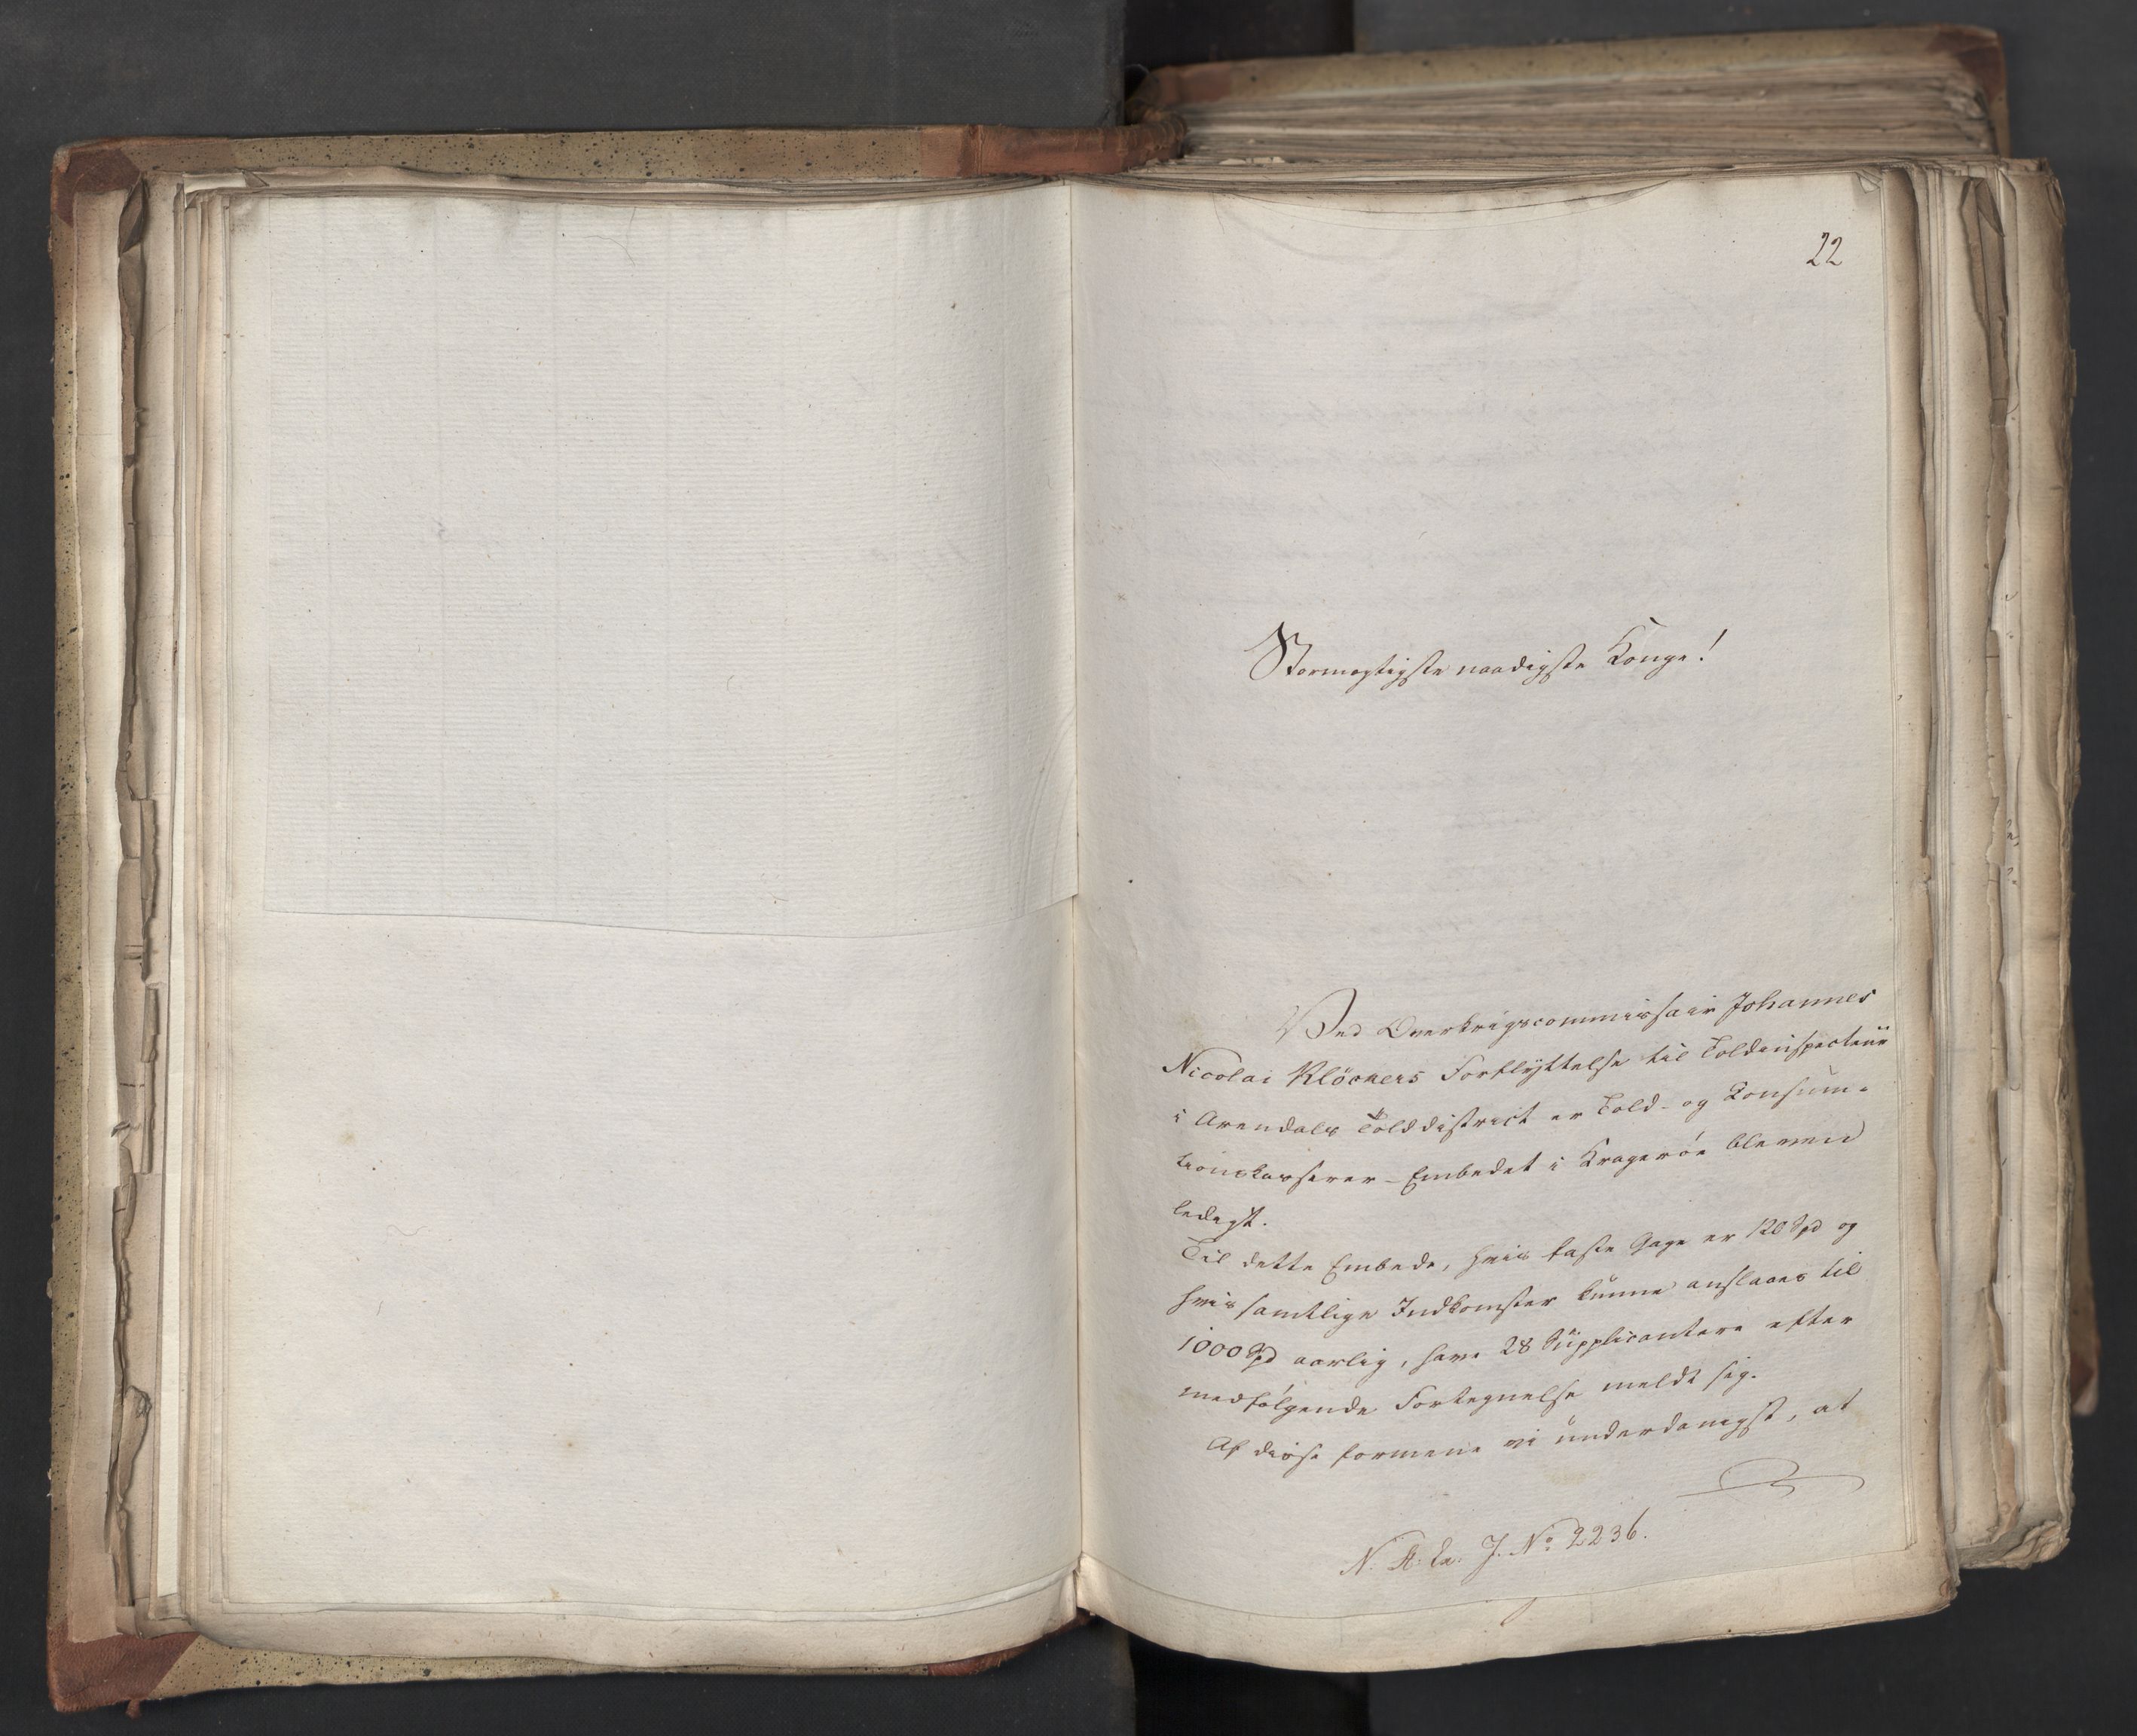 22
Stormægtigste naadigste Konge!
Ved Overkrigscommissair Johannes
Nicolai Klöckers Forflyttelse til Toldinspecteur
i Arendals Tolddistrict er Told- og Konsum-
tionskasserer-Embedet i Kragerøe bleven
ledigt.
Til dette Embede, hvis faste Gage er 120 Spd og
hvis samtlige Indkomster kunne anslaaes til
1000 Spd aarlig, have 28 Supplicantere efter
medfølgende Fortegnelse meldt sig.
Af disse formene vi underdanigst, at
J. No 2236.